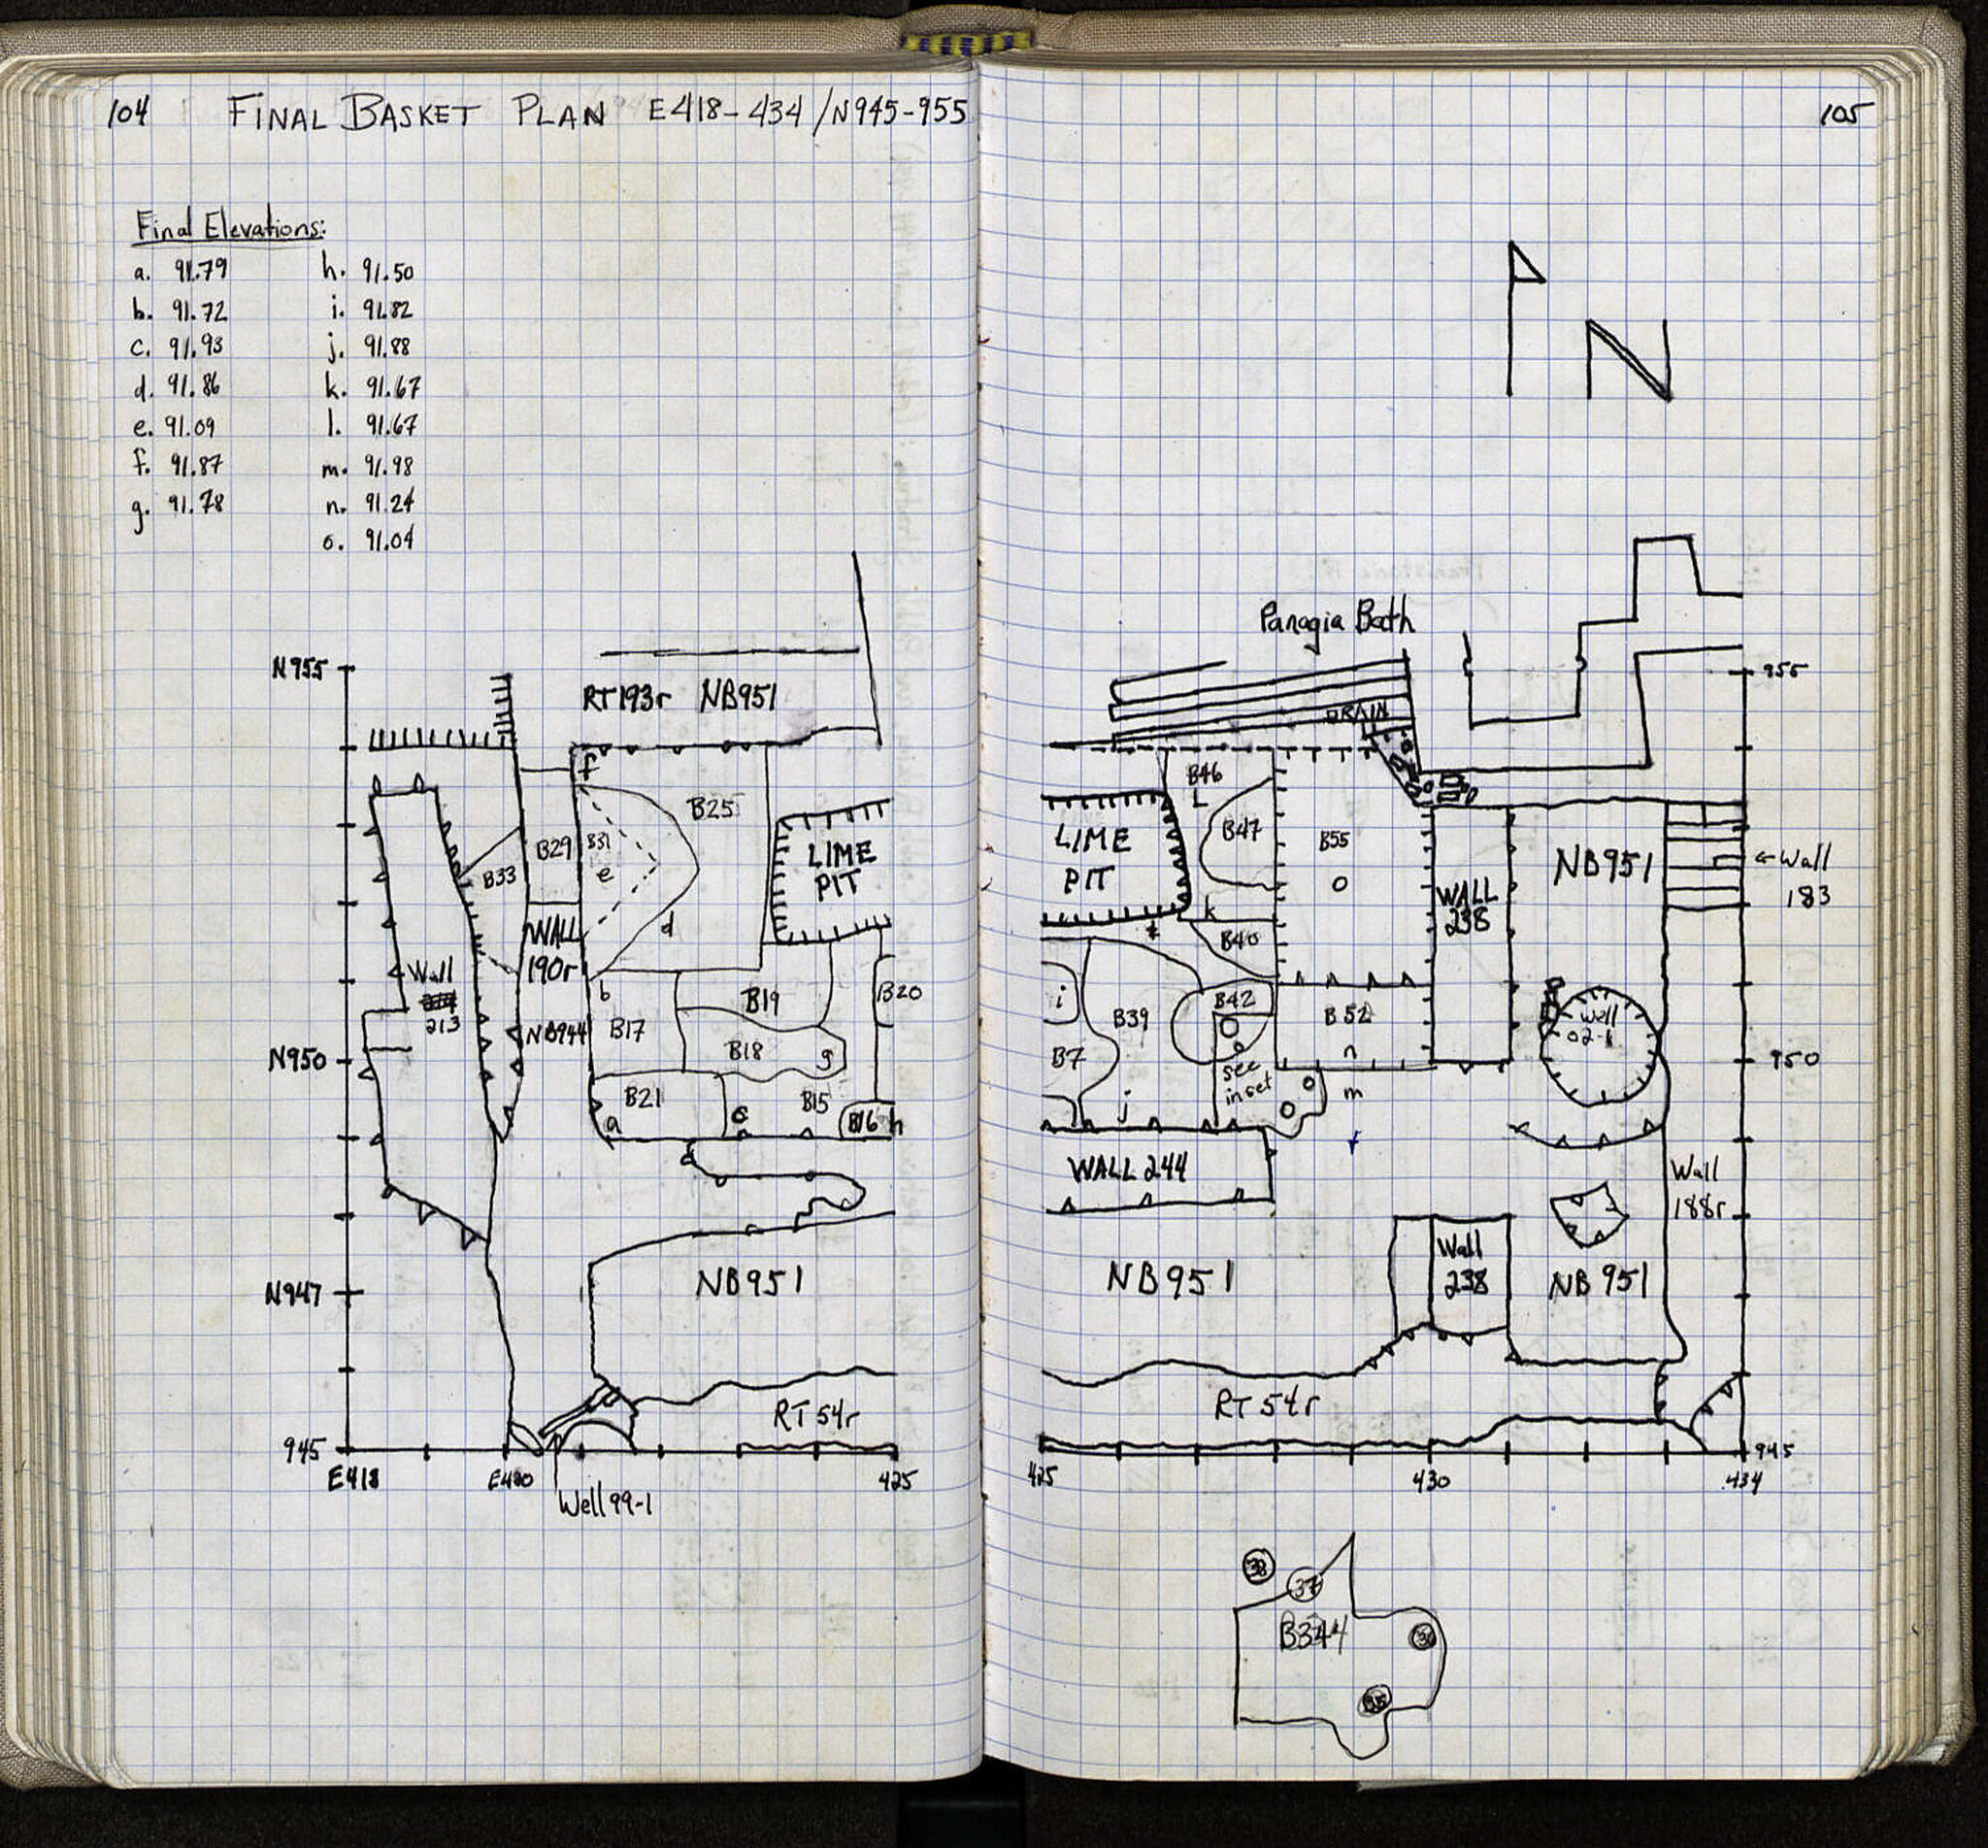 104 FINAL BASKET PLAN E418-434/N945-955
Final Elevations:
a. 91.79
b. 91.72
c. 91.93
d. 91.86
e. 91.09
f. 91.87
g. 91.78
h. 91.50
i. 91.82
j. 91.88
k. 91.67
l. 91.67
m. 91.98
n. 91.24
o. 91.04
N955
RT193r NB951
f
B25
B29
B31
e
B33
LIME
PIT
WALL
190r
d
Wall
213
b
B19
B20
NB944
B17
B18
g
N950
B21
B15
a
c
B16 h
N947
NB951
RT 54r
945
E418
E420
425
Well 99-1
105
N
Panagia Bath
955
DRAIN
B46
L
B47
B55
o
LIME
PIT
NB951
Wall
183
WALL
238
k
B40
i
B42
B39
B52
Well
02-1
B7
n
950
see
inset
m
j
WALL 244
Wall
188r
NB951
Wall
238
NB951
RT 54r
945
425
430
434
38
37
B34
36
35